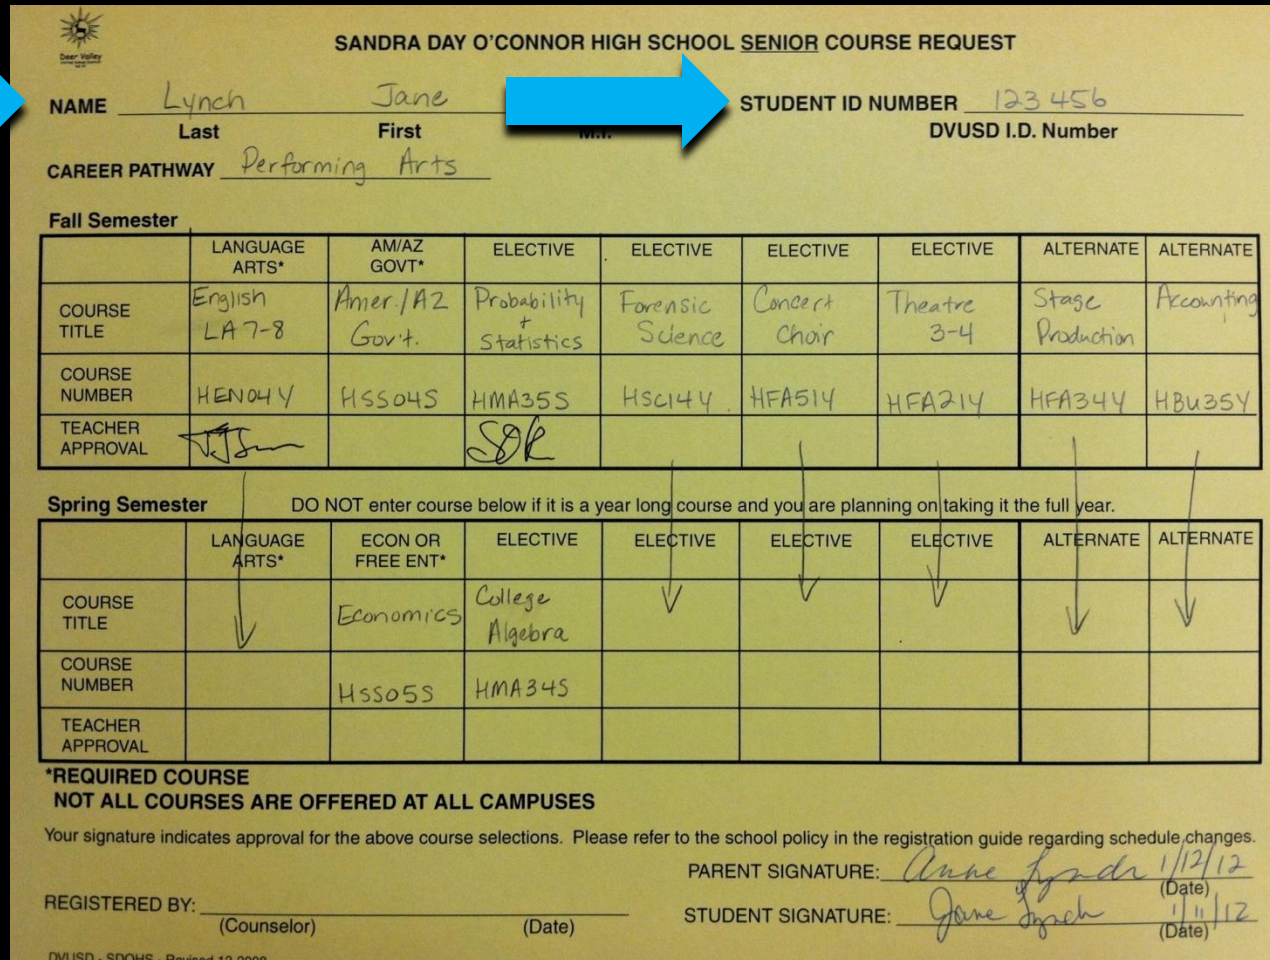 Deer Valley
SANDRA DAY O'CONNOR HIGH SCHOOL SENIOR COURSE REQUEST
NAME Lynch Jane STUDENT ID NUMBER 123456
Last First M.I. DVUSD I.D. Number
CAREER PATHWAY Performing Arts
Fall Semester
LANGUAGE ARTS* AM/AZ GOVT* ELECTIVE ELECTIVE ELECTIVE ELECTIVE ALTERNATE ALTERNATE
COURSE TITLE English LA 7-8 Amer./AZ Gov't. Probability + Statistics Forensic Science Concert Choir Theatre 3-4 Stage Production Accounting
COURSE NUMBER HEN04Y HSS04S HMA35S HSC14Y HFA51Y HFA21Y HFA34Y HBU35Y
TEACHER APPROVAL
Spring Semester DO NOT enter course below if it is a year long course and you are planning on taking it the full year.
LANGUAGE ARTS* ECON OR FREE ENT* ELECTIVE ELECTIVE ELECTIVE ELECTIVE ALTERNATE ALTERNATE
COURSE TITLE Economics College Algebra
COURSE NUMBER HSS05S HMA34S
TEACHER APPROVAL
*REQUIRED COURSE
NOT ALL COURSES ARE OFFERED AT ALL CAMPUSES
Your signature indicates approval for the above course selections. Please refer to the school policy in the registration guide regarding schedule changes.
PARENT SIGNATURE: Anne Lynch 1/12/12
(Date)
REGISTERED BY: STUDENT SIGNATURE: Jane Lynch 1/11/12
(Counselor) (Date) (Date)
DVUSD - SDOHS - Revised 12-2009